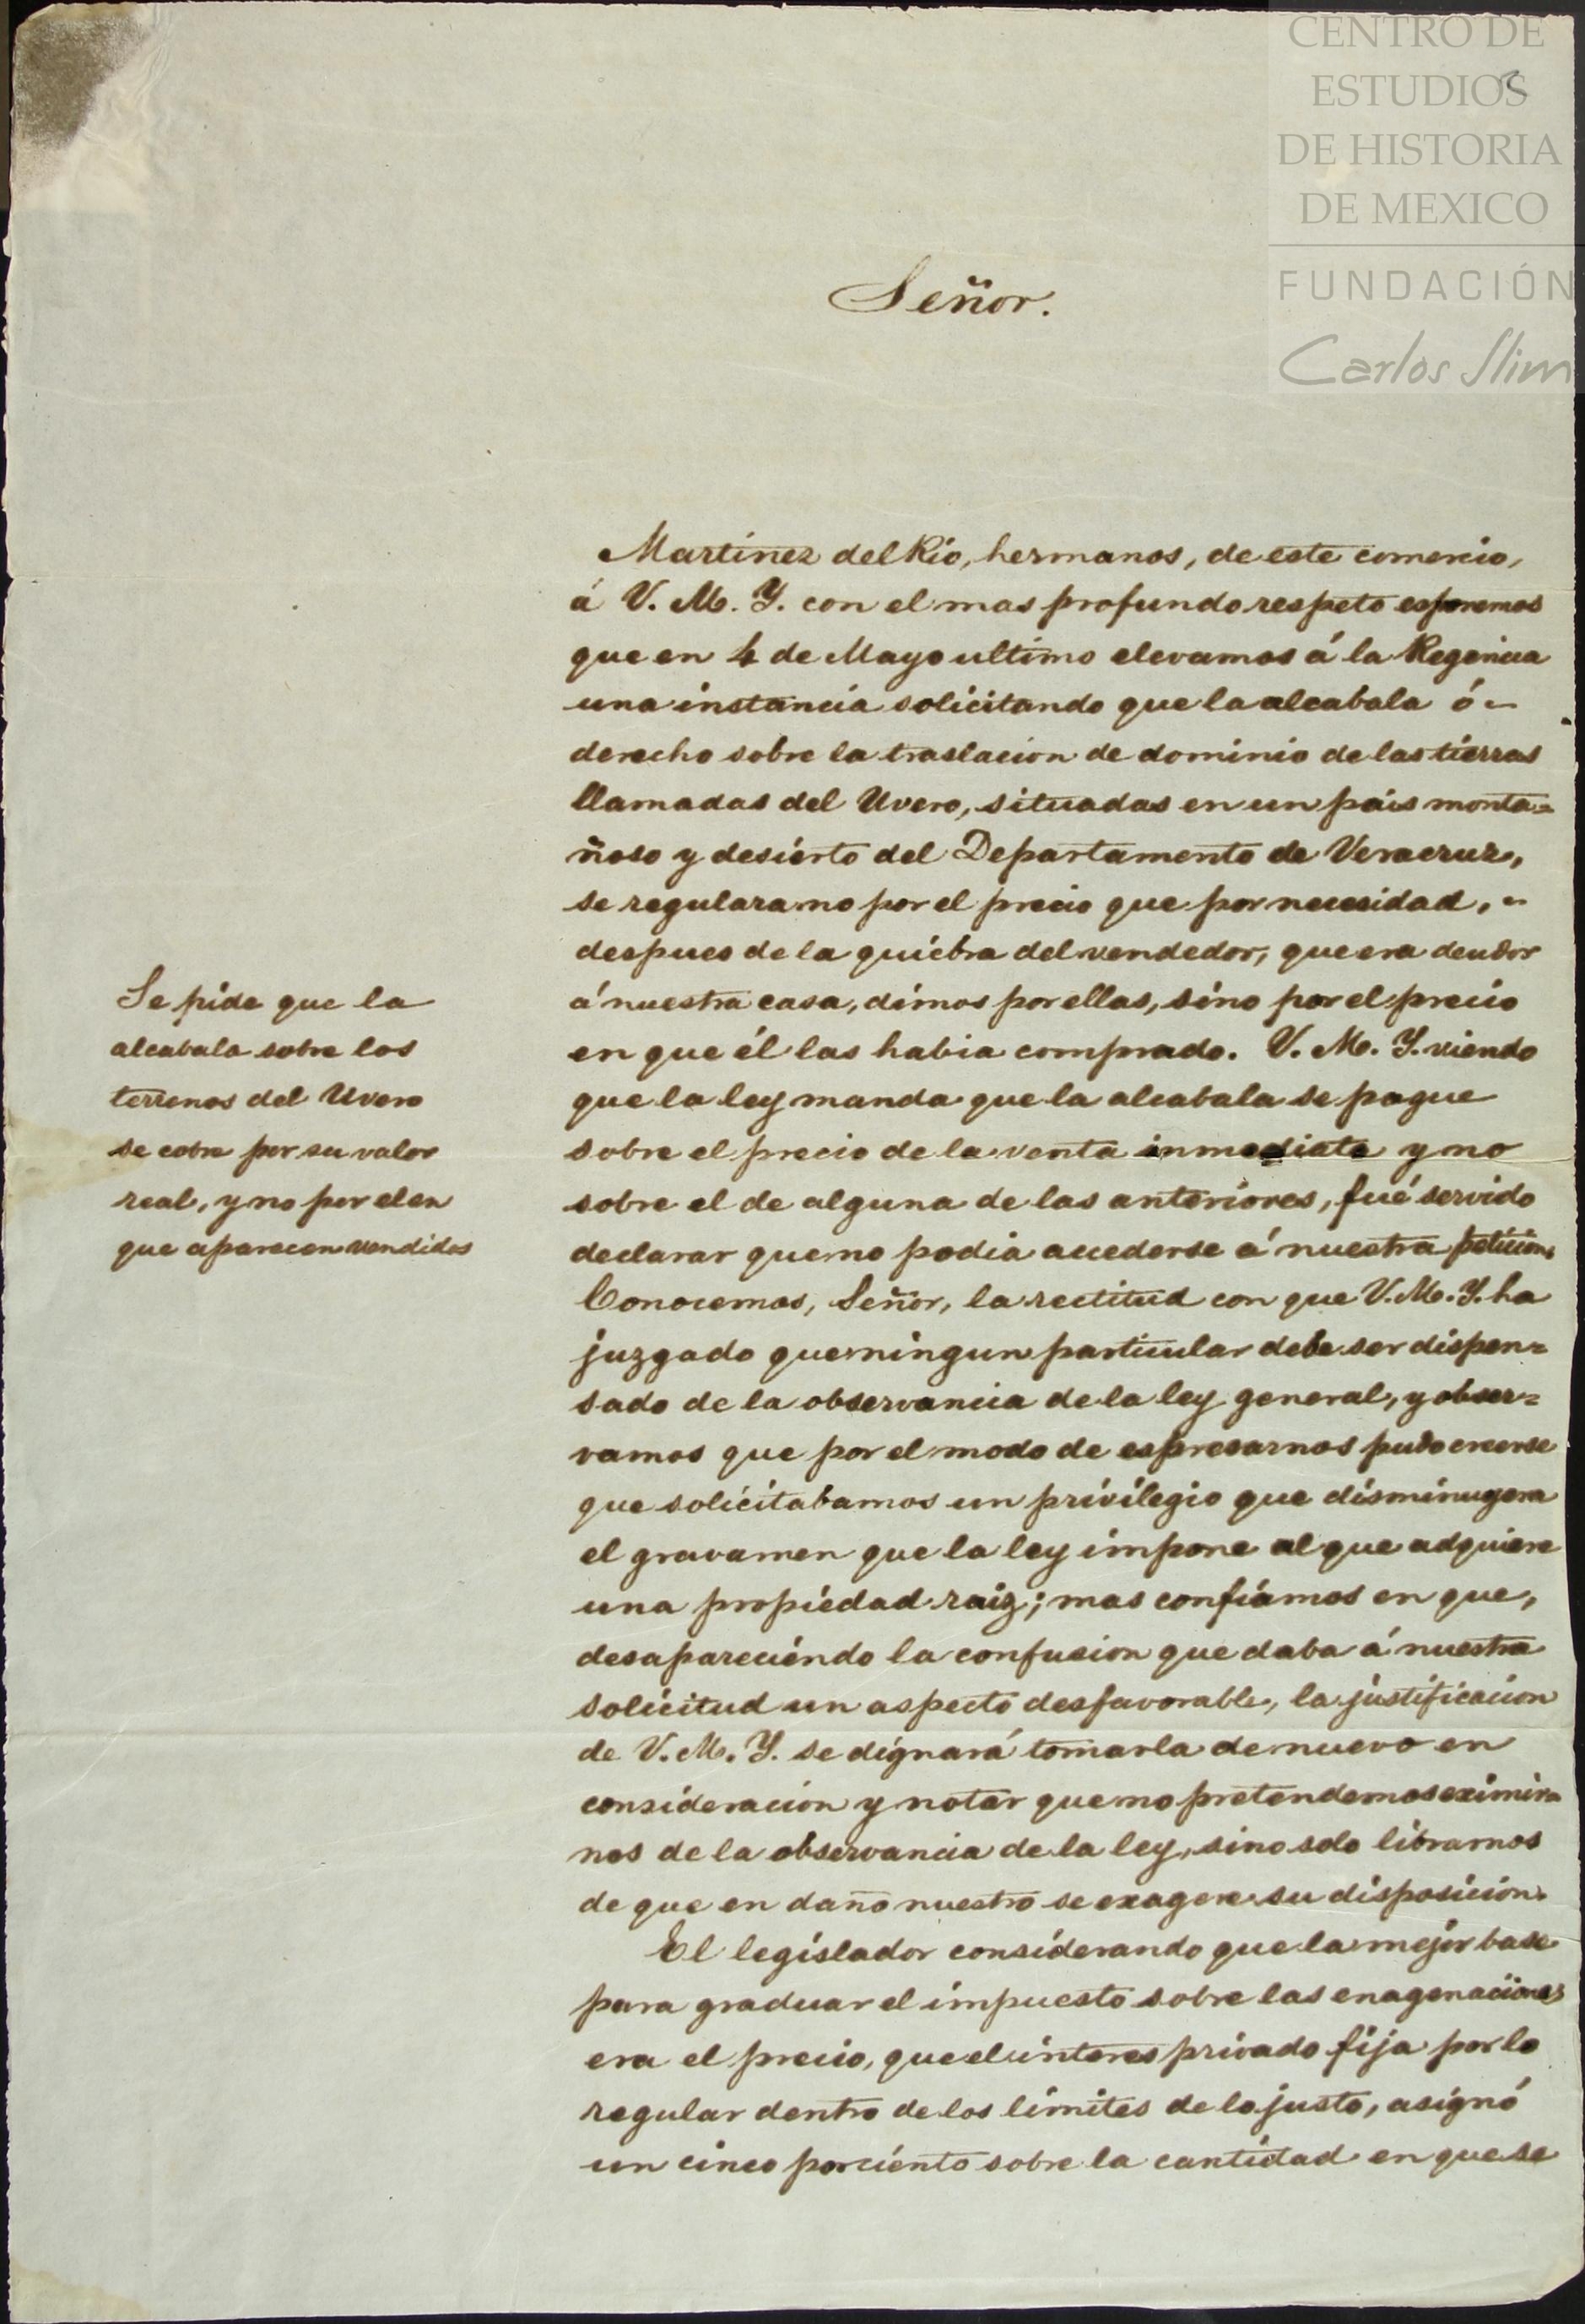 CENTRO DE
ESTUDIOS
DE HISTORIA
DE MEXICO
FUNDACIÓN
Carlos Slim
2
Señor.
Martinez del Rio, hermanos, de este comercio,
á V. M. Y. con el mas profundo respeto esponemos
que en 4 de Mayo ultimo elevamos á la Regencia
una instancia solicitando que la alcabala ó
derecho sobre la traslacion de dominio de las tierras
llamadas del Uvero, situadas en un pais monta=
ñoso y desierto del Departamento de Veracruz,
se regulara no por el precio que por necesidad,
despues de la quiebra del vendedor, que era deudor
á nuestra casa, dimos por ellas, sino por el precio
en que él las habia comprado. V. M. Y. viendo
que la ley manda que la alcabala se pague
sobre el precio de la venta inmediata y no
sobre el de alguna de las anteriores, fué servido
declarar que no podia accederse á nuestra peticion.
Conocemos, Señor, la rectitud con que V. M. Y. ha
juzgado que ningun particular debe ser dispen=
sado de la observancia de la ley general, y obser=
vamos que por el modo de espresarnos pudo creerse
que solicitabamos un privilegio que disminuyera
el gravamen que la ley impone al que adquiere
una propiedad raiz; mas confiamos en que,
desapareciendo la confusion que daba á nuestra
solicitud un aspecto desfavorable, la justificacion
de V. M. Y. se dignará tomarla de nuevo en
consideracion y notar que no pretendemos eximir=
nos de la observancia de la ley, sino solo librarnos
de que en daño nuestro se exagere su disposicion.
El legislador considerando que la mejor base
para graduar el impuesto sobre las enagenaciones
era el precio, que el interes privado fija por lo
regular dentro de los limites de lo justo, asignó
un cinco por ciento sobre la cantidad en que se
Se pide que la
alcabala sobre los
terrenos del Uvero
se cobre por su valor
real, y no por el en
que aparecen vendidos